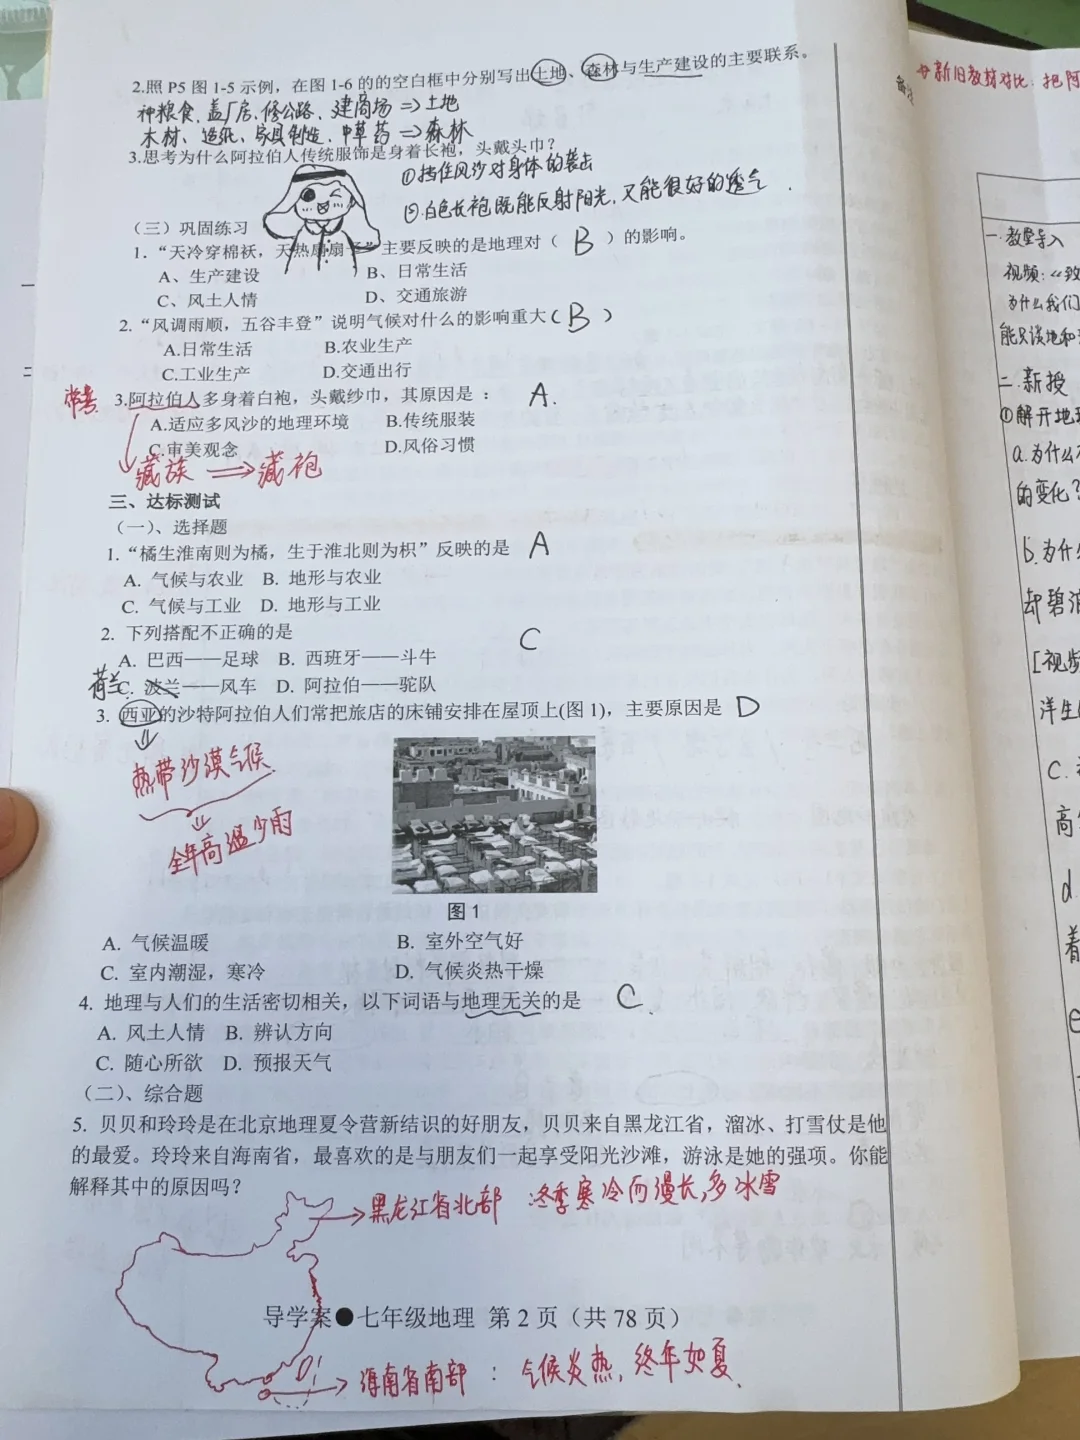 2.照 P5 图 1-5 示例，在图 1-6 的的空白框中分别写出土地、森林与生产建设的主要联系。
种粮食、盖厂房、修公路、建商场⇒土地
木材、造纸、家具制造、中草药⇒森林
3.思考为什么阿拉伯人传统服饰是身着长袍，头戴头巾？
①挡住风沙对身体的袭击
②白色长袍既能反射阳光，又能很好的透气.
（三）巩固练习
1. “天冷穿棉袄，天热扇扇子”主要反映的是地理对（ B ）的影响。
A、生产建设 B、日常生活
C、风土人情 D、交通旅游
2. “风调雨顺，五谷丰登”说明气候对什么的影响重大（ B ）
A.日常生活 B.农业生产
C.工业生产 D.交通出行
常考 3.阿拉伯人多身着白袍，头戴纱巾，其原因是： A.
A.适应多风沙的地理环境 B.传统服装
C.审美观念 D.风俗习惯
藏族⇒藏袍
三、达标测试
（一）、选择题
1. “橘生淮南则为橘，生于淮北则为枳”反映的是 A
A. 气候与农业 B. 地形与农业
C. 气候与工业 D. 地形与工业
2. 下列搭配不正确的是 C
A. 巴西——足球 B. 西班牙——斗牛
荷兰 C. 波兰——风车 D. 阿拉伯——驼队
3. 西亚的沙特阿拉伯人们常把旅店的床铺安排在屋顶上(图 1)，主要原因是 D
热带沙漠气候
全年高温少雨
图 1
A. 气候温暖 B. 室外空气好
C. 室内潮湿，寒冷 D. 气候炎热干燥
4. 地理与人们的生活密切相关，以下词语与地理无关的是 C.
A. 风土人情 B. 辨认方向
C. 随心所欲 D. 预报天气
（二）、综合题
5. 贝贝和玲玲是在北京地理夏令营新结识的好朋友，贝贝来自黑龙江省，溜冰、打雪仗是他
的最爱。玲玲来自海南省，最喜欢的是与朋友们一起享受阳光沙滩，游泳是她的强项。你能
解释其中的原因吗？
→黑龙江省北部 :冬季寒冷而漫长,多冰雪
导学案●七年级地理 第 2 页（共 78 页）
→海南省南部 : 气候炎热,终年如夏.
新旧教材对比：把阿
一.教学导入
视频：“致
为什么我们
能只谈地和
二.新授
①解开地理
a.为什么
的变化？
b.为什么
却碧波
[视频
洋生
C.
高
d.
着
e